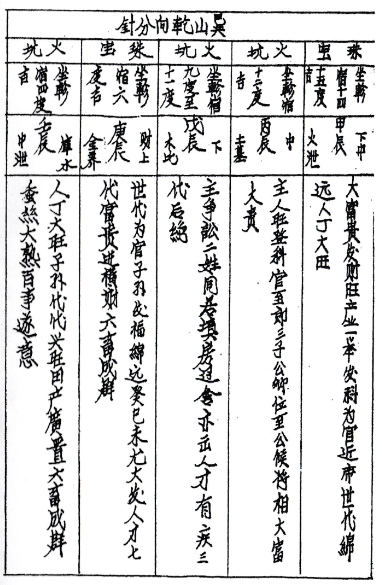 巽山乾向分針
珠宝
坐軫
宿十四
十五度
吉
下中
甲辰
火泄
大富貴发财旺产业一举发科为官近帝世代綿
远人丁大旺
火坑
坐軫宿
十二度
吉
中
丙辰
土墓
主人旺登科官至郎三子公卿位至公候将相大富
大貴
火坑
坐軫宿
九度至
十二度
下
戊辰
木比
主争訟二姓同居填房过舍亦出人才有疾三
代后絶
珠宝
坐軫
宿六
度吉
财上
庚辰
金养
世代为官子孙发福綿远癸巳未尤大发人才七
代富贵进横财六畜成群
火坑
坐軫
宿四度
吉
水
壬辰
中泄
人丁大旺子孙代代兴旺田产廣置六畜成群
蚕絲大熟百事遂意